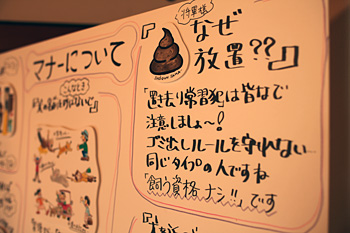 マナーについて
こんなとき
なぜ
放置??』
「置き去り常習犯は皆なで
注意しましょ〜!
ゴミ出しルールを守れない…
同じタイプの人ですね
「飼う資格ナシ!!」です